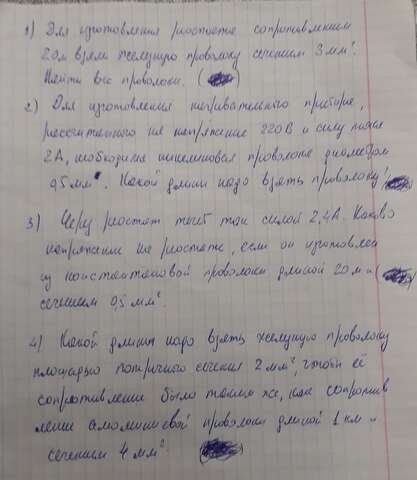 1) Для изготовления реостата сопротивлением
2 Ом взяли железную проволоку сечением 3 мм².
Найти вес проволоки.
2) Для изготовления нагривательного прибора,
рассчитанного на напряжение 220 В и силу тока
2А, необходима никелиновая проволока диаметром
0,5 мм. Какой длины надо взять проволоку?
3) Через реостат течёт ток силой 2,4 А. Каково
напряжение на реостате, если он изготовлен
из константановой проволоки длиной 20 м и
сечением 0,5 мм².
4) Какой длины надо взять железную проволоку
площадью попиричного сечения 2 мм², чтобы её
сопротивление было таким же, как сопротив
ление алюминиевой проволоки длиной 1 км и
сечением 4 мм².